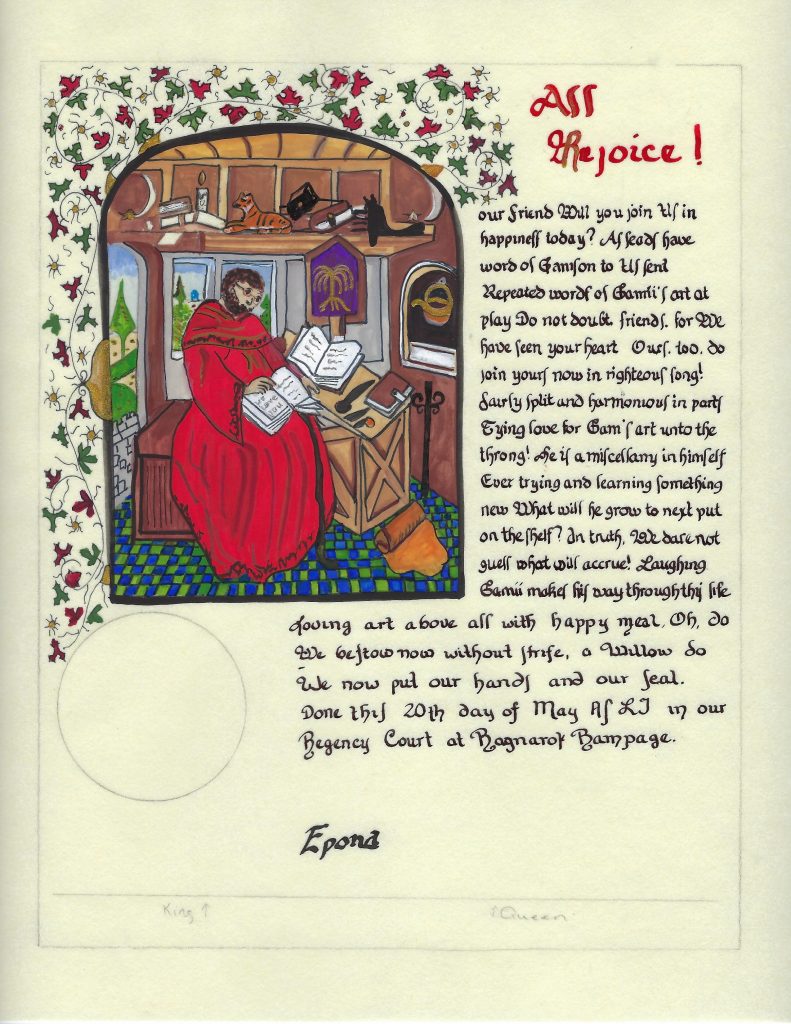 All
Rejoice !
our friend Will you join Us in
happiness today? As seads have
word of Gamson to Us sent
Repeated words of Gamii's art at
play Do not doubt, friends, for We
have seen your heart Ours, too, do
join yours now in righteous song!
Fairly split and harmonious in parts
Tying love for Gam's art unto the
throng! He is a miscellany in himself
Ever trying and learning something
new What will he grow to next put
on the shelf? In truth, We dare not
guess what will accrue! Laughing
Gamii makes his way through this life
Loving art above all with happy meal. Oh, do
We bestow now without strife, a Willow do
We now put our hands and our seal.
Done this 20th day of May AS LI in our
Regency Court at Ragnarok Rampage.
Epona
King ↑
↑ Queen